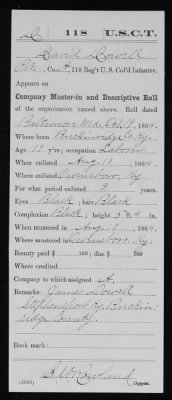 118 U.S.C.T.
David Dowell
Pvt., Co. F, 118 Reg't U. S. Col'd Infantry.
Appears on
Company Muster-in and Descriptive Roll
of the organization named above. Roll dated
Baltimore, Md., Oct 19, 1864.
Where born Breckinridge Co, Ky.
Age 19 y'rs; occupation Labor
When enlisted Aug. 10, 1864.
Where enlisted Owensboro, Ky
For what period enlisted 3 years.
Eyes Black; hair Black
Complexion Black; height 5 ft. 4 in.
When mustered in Aug 10, 1864.
Where mustered in Owensboro, Ky.
Bounty paid $ 100; due $ 100
Where credited
Company to which assigned A.
Remarks: James Dowell
Stephensport Ky, Breckin
ridge County.
Book mark:
(356d) Copyist.